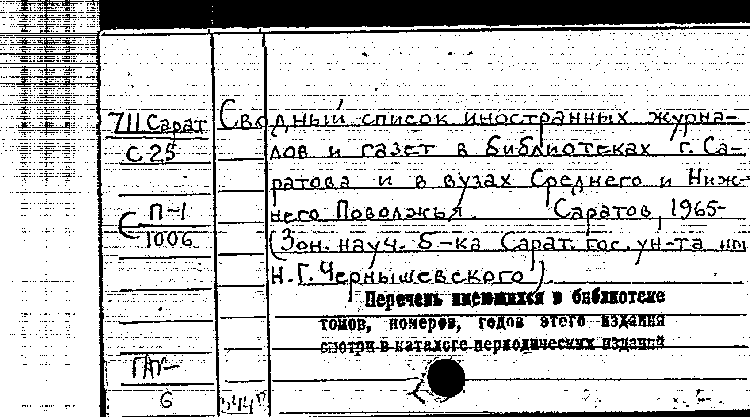 711 Сарат
С25
С П-1
1006
Сводный список иностранных журна-
лов и газет в библиотеках г. Са-
ратова и в вузах Среднего и Ниж-
него Поволжья. Саратов, 1965-
(Зон. науч. б-ка Сарат. гос. ун-та им
Н.Г. Чернышевского).
Перечень имеющихся в библиотеке
томов, номеров, годов этого издания
смотри в каталоге периодических изданий
6